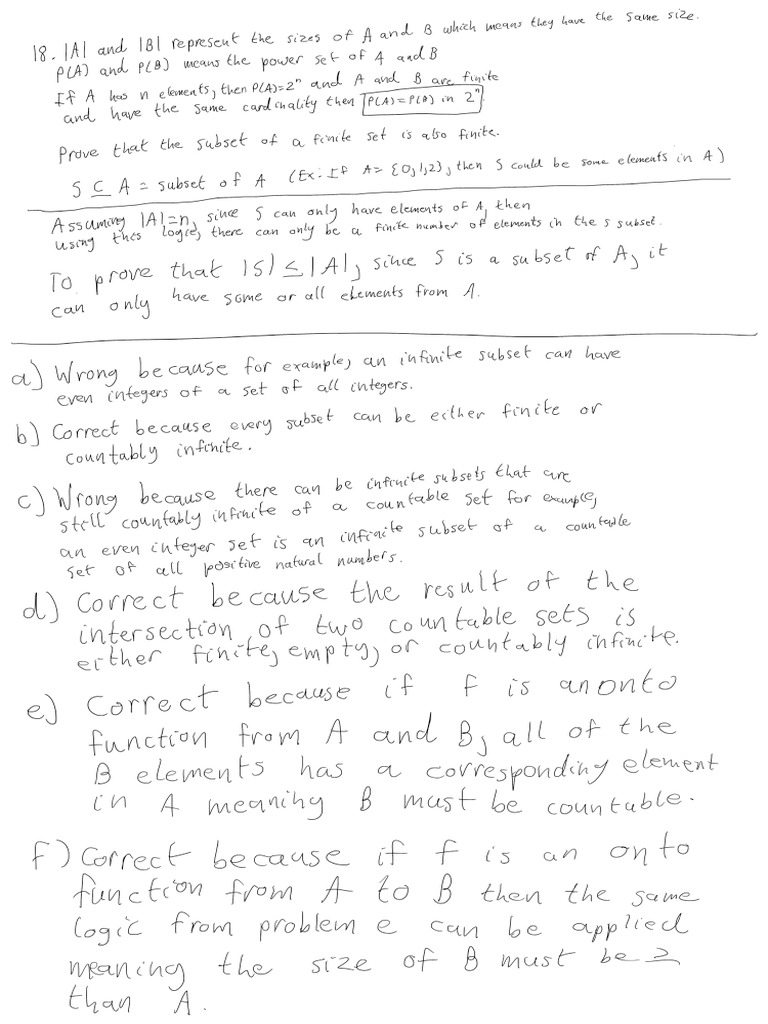 18. |A| and |B| represent the sizes of A and B which means they have the same size.
P(A) and P(B) means the power set of A and B
If A has n elements, then P(A)=2ⁿ and A and B are finite
and have the same cardinality then |P(A)=P(B) in 2ⁿ|
Prove that the subset of a finite set is also finite.
S ⊆ A = subset of A (Ex: If A= {0,1,2}, then S could be some elements in A)
Assuming |A|=n, since S can only have elements of A, then
using this logic, there can only be a finite number of elements in the s subset.
To prove that |S| ≤ |A|, since S is a subset of A, it
can only have some or all elements from A.
a) Wrong because for example, an infinite subset can have
even integers of a set of all integers.
b) Correct because every subset can be either finite or
countably infinite.
c) Wrong because there can be infinite subsets that are
still countably infinite of a countable set for example,
an even integer set is an infinite subset of a countable
set of all positive natural numbers.
d) Correct because the result of the
intersection of two countable sets is
either finite, empty, or countably infinite.
e) Correct because if f is an onto
function from A and B, all of the
B elements has a corresponding element
in A meaning B must be countable.
f) Correct because if f is an onto
function from A to B then the same
logic from problem e can be applied
meaning the size of B must be ≥
than A.